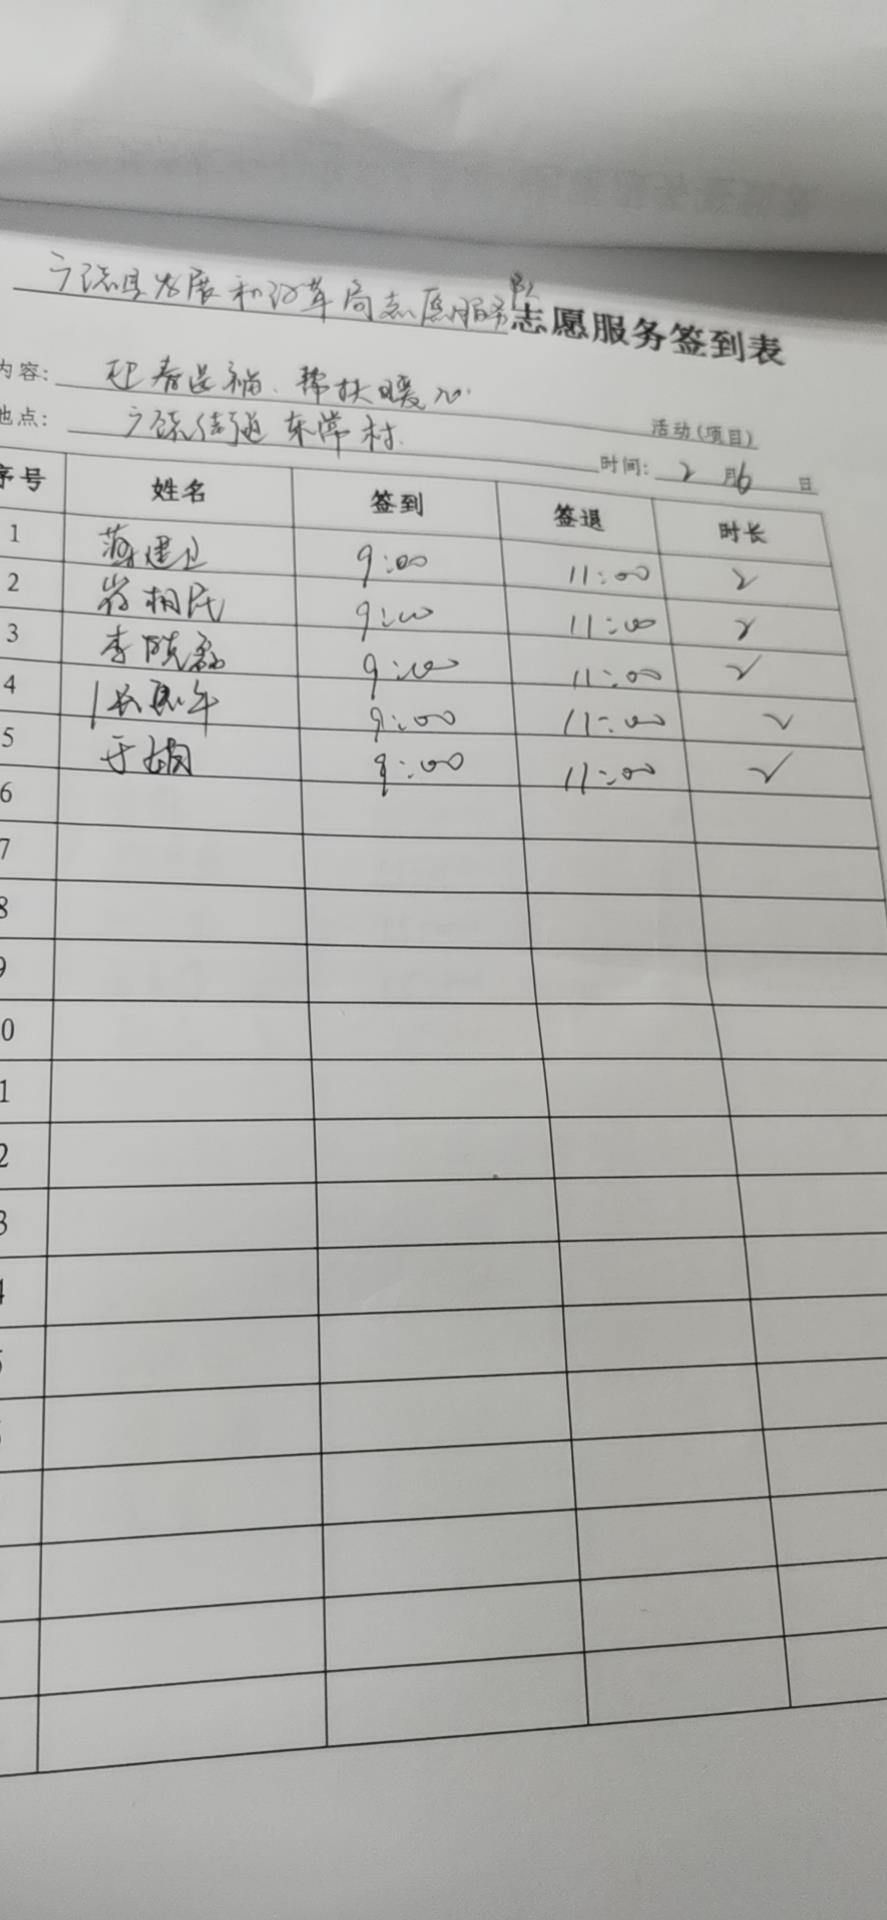 广饶县发展和改革局志愿服务队志愿服务签到表
内容: 迎春送福、帮扶暖心
活动(项目)
地点: 广饶街道东常村
时间: 2月6日
序号 姓名 签到 签退 时长
1 薄建卫 9:00 11:00 2
2 相民 9:00 11:00 2
3 李晓磊 9:00 11:00 2
4 9:00 11:00 2
5 于娟 9:00 11:00 2
6
7
8
9
0
1
2
3
4
5